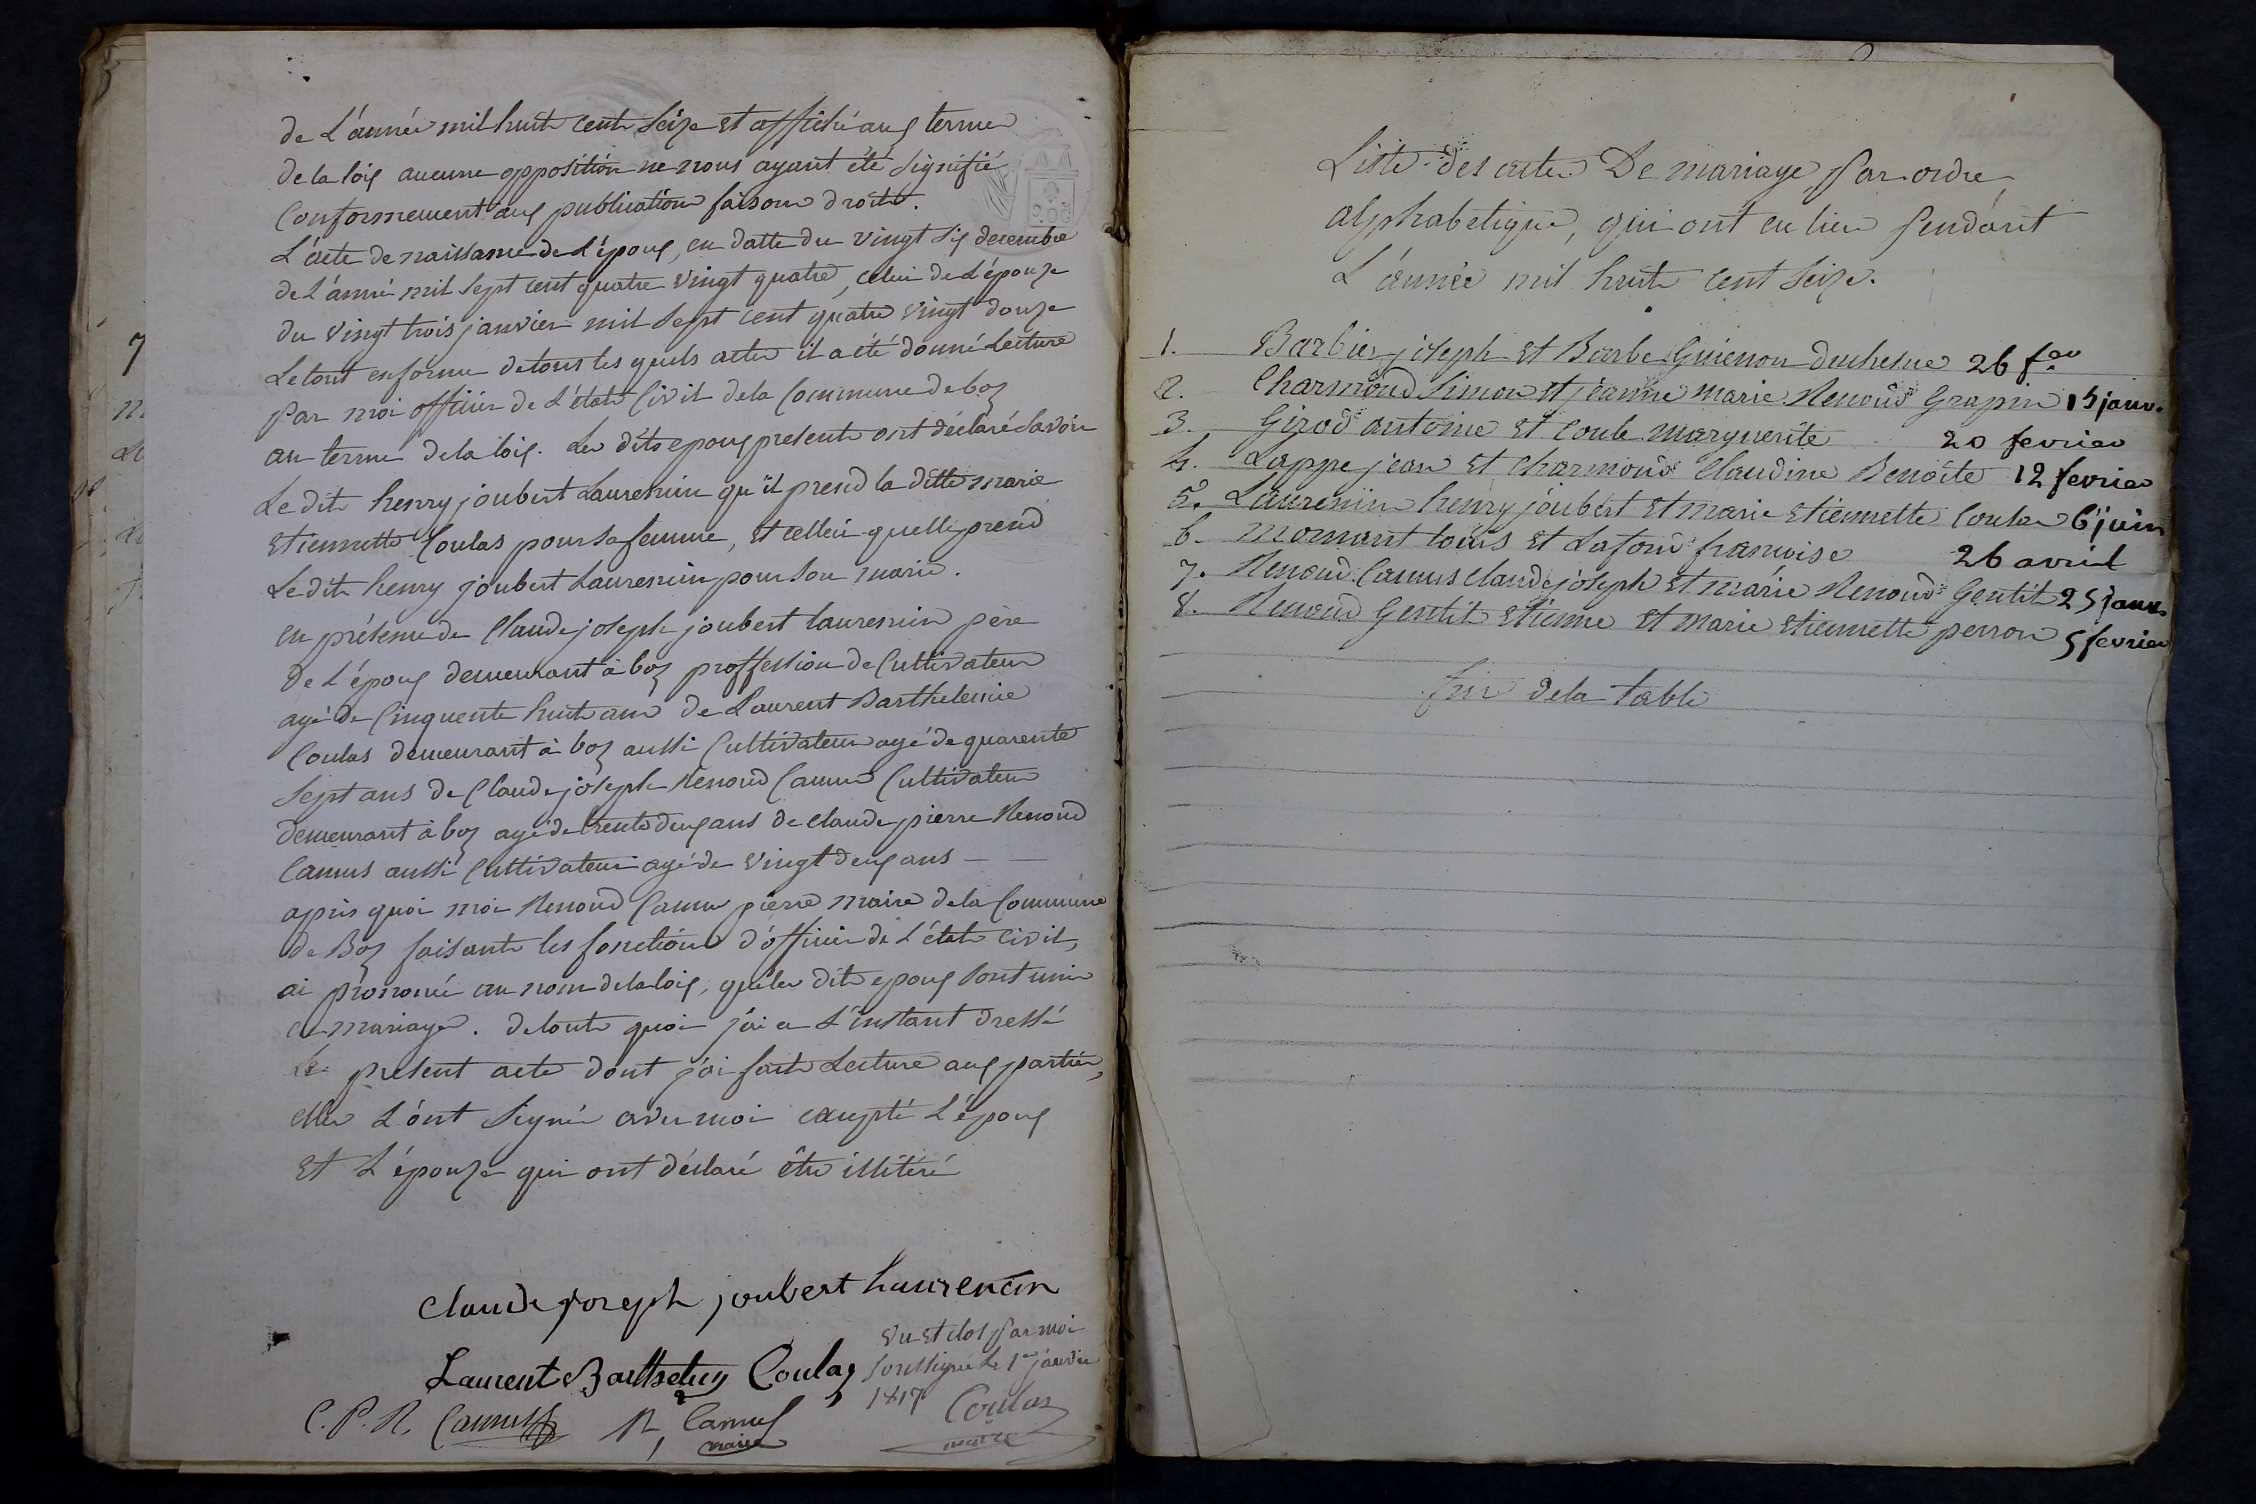 de L'année mil huit cent seize et affiché aux terme
de la loix aucune opposition ne nous ayant été signifié
conformement aux publication faison droite.
L'acte de naissance de L'époux, en datte du vingt six decembre
de L'anné mil sept cent quatre vingt quatre, celui de L'épouze
du vingt trois janvier mil sept cent quatre vingt douze
Le tout en forme de tous les quels acter il a été donné Lecture
par moi officier de L'état Civil de la Commune de boz
au terme de la loix. Les dits epoux present ont déclaré savoir
Le dit henry joubert Laurencin qu'il prend la ditte marie
etiennette Coulas pour sa femme, et celleci quelle prend
Le dit henry joubert Laurencin pour son marie.
en présence de Claude joseph joubert laurencin père
de L'époux demeurant à boz proffession de Cultivateur
agé de Cinquente huit ans de Laurent Barthelemie
Coulas demeurant à boz aussi Cultivateur agé de quarente
sept ans de Claude joseph Renoud Camus Cultivateur
demeurant à boz agé de trente deux ans de Claude pierre Renoud
Camus aussi Cultivateur agé de vingt deux ans
après quoi moi Renoud Camus pierre maire de la Commune
de Boz faisant les fonctions d'officier de L'état civil,
ai prononcé au nom de la loix, que les dits epoux sont unis
en mariage. de toute quoi j'ai a L'instant dressé
Le present acte dont j'ai fait Lecture aux parties,
elles L'ont signé avec moi excepté L'époux
et L'épouze qui ont déclaré être illitéré
claude joseph joubert laurencin
Laurent Barthelmy Coulas
vu et clos par moi
soussigné le 1er janvier
1817
Coulas
maire
C. P. R. Camus
R, Camus
maire
Liste des actes De mariage par ordre
alphabetique, qui ont eu lieu pendant
L'année mil huit cent seize.
1. Barbier joseph et Barbe Guienon duchesne 26 fer
2. Charmoud Simon et jeanne marie Renoud Grapin 15 janv.
3. Girod antoine et Coule marguerite 20 fevrier
4. Lappe jean et Charmoud Claudine Benoite 12 fevrier
5. Laurencin henry joubert et marie etiennette Coulas 6 juin
6. mornant louis et Lafond francoise 26 avril
7. Renoud Camus claude joseph et marie Renoud Gentit 25 janv
8. Renoud Gentit etienne et marie etiennette perron 5 fevrier
fin de la table